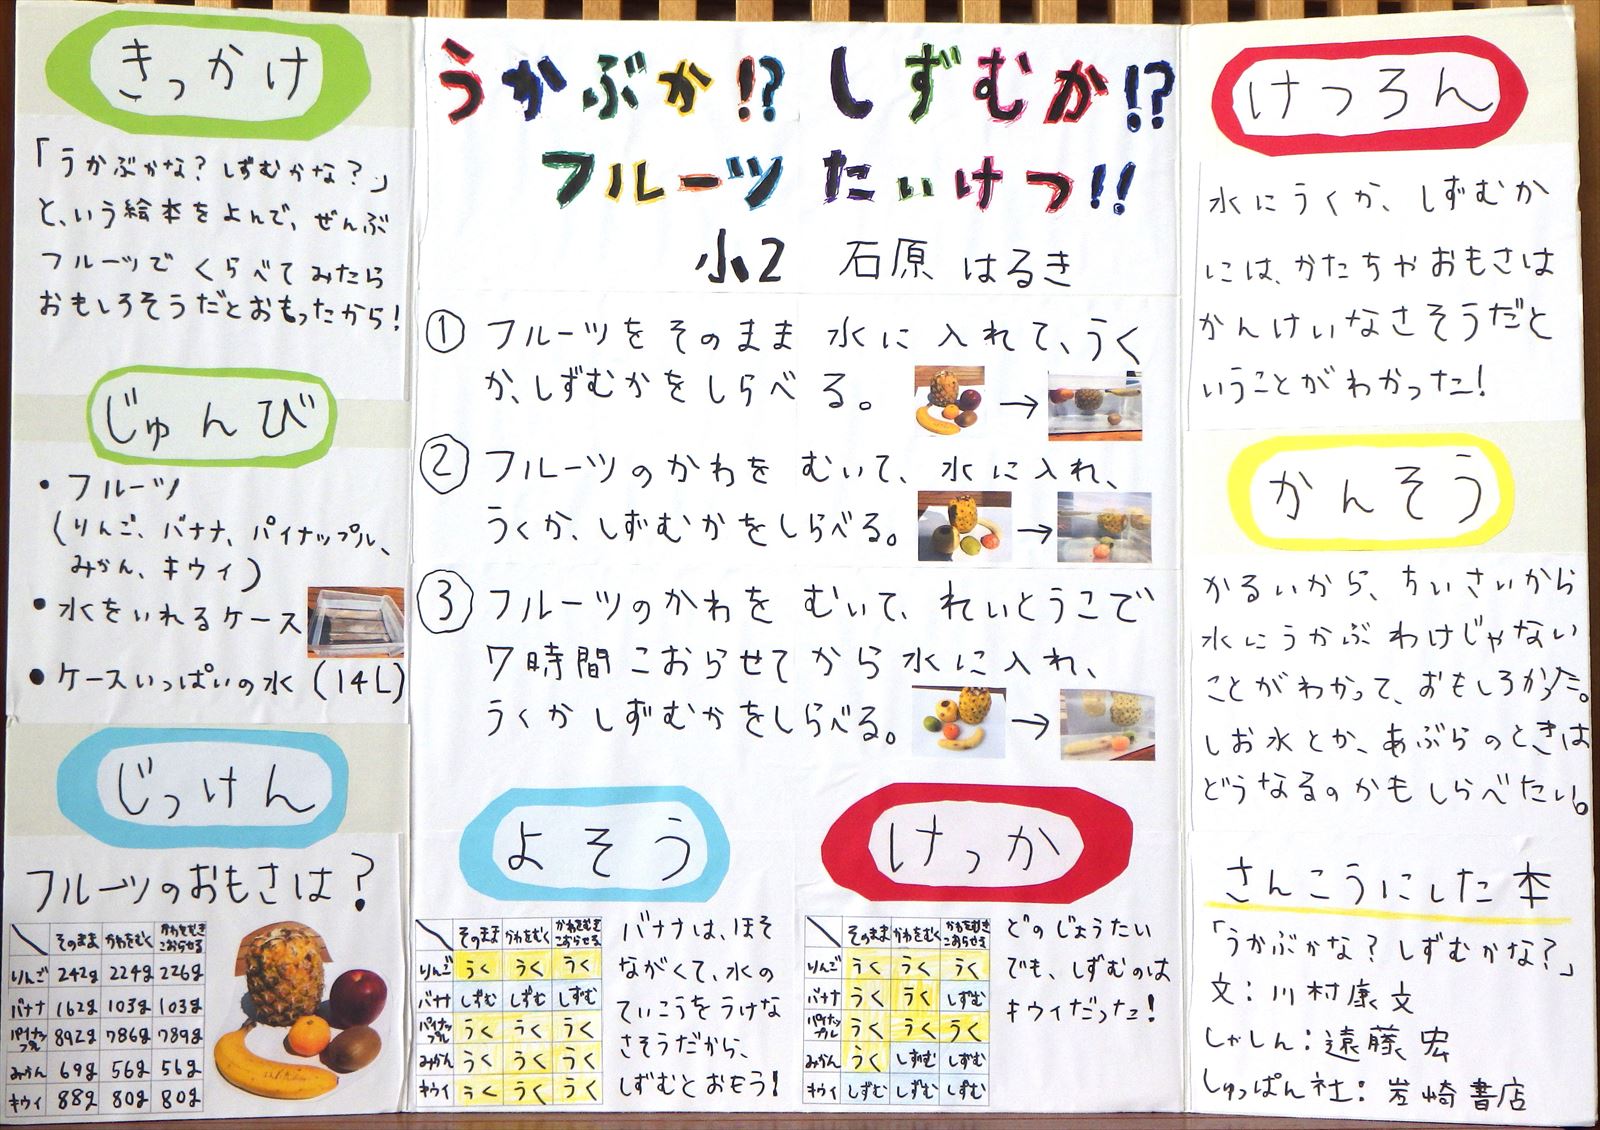 うかぶか!? しずむか!?
フルーツ たいけつ!!
小2 石原 はるき
きっかけ
「うかぶかな? しずむかな?」
と、いう絵本をよんで、ぜんぶ
フルーツで くらべてみたら
おもしろそうだとおもったから!
じゅんび
・フルーツ
(りんご、バナナ、パイナップル、
みかん、キウイ)
・水をいれるケース
・ケースいっぱいの水(14L)
じっけん
フルーツのおもさは?
そのまま かわをむく かわをむきこおらせる
りんご 242g 224g 226g
バナナ 162g 103g 103g
パイナップル 892g 786g 789g
みかん 69g 56g 56g
キウイ 88g 80g 80g
① フルーツをそのまま 水に入れて、うく
か、しずむかをしらべる。
→
② フルーツのかわを むいて、水に入れ、
うくか、しずむかをしらべる。
→
③ フルーツのかわを むいて、れいとうこで
7時間こおらせてから水に入れ、
うくか しずむかをしらべる。
→
よそう
そのまま かわをむく かわをむきこおらせる
りんご うく うく うく
バナナ しずむ しずむ しずむ
パイナップル うく うく うく
みかん うく うく うく
キウイ うく うく うく
バナナは、ほそ
ながくて、水の
ていこうをうけな
さそうだから、
しずむとおもう!
けっか
そのまま かわをむく かわをむきこおらせる
りんご うく うく うく
バナナ うく うく しずむ
パイナップル うく うく うく
みかん うく しずむ しずむ
キウイ しずむ しずむ しずむ
どのじょうたい
でも、しずむのは
キウイだった!
けつろん
水にうくか、しずむか
には、かたちやおもさは
かんけいなさそうだと
いうことがわかった!
かんそう
かるいから、ちいさいから
水にうかぶわけじゃない
ことがわかって、おもしろかった。
しお水とか、あぶらのときは
どうなるのかもしらべたい。
さんこうにした本
「うかぶかな? しずむかな?」
文:川村康文
しゃしん:遠藤宏
しゅっぱん社:岩崎書店